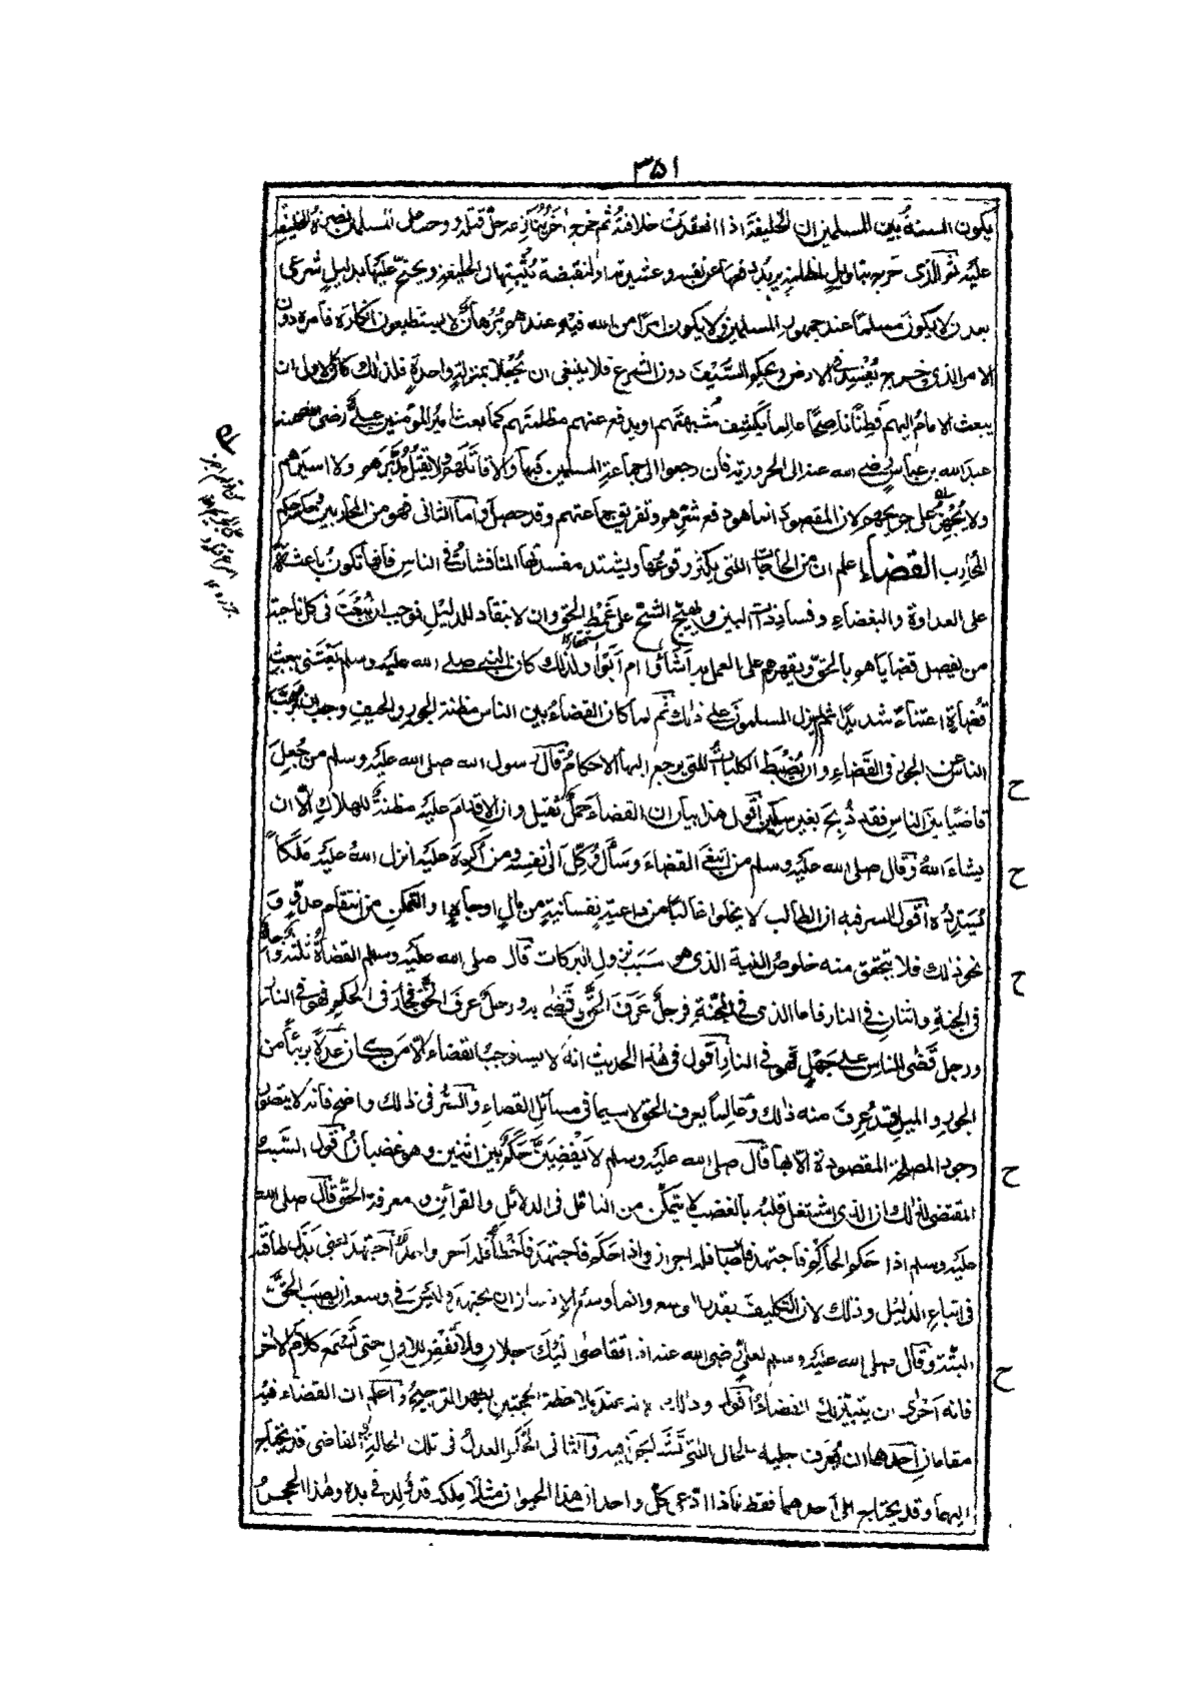 ٣٥١
يكون السنة بين المسلمين ان الخليفة اذا انعقدت خلافته ثم خرج اٰخر ينازعه حل قتله ووجب على المسلمين نصرة الخليفة
عليه ثم الذى خرج بتاويل لمظلمة يريد دفعها عن نفسه وعشيرته او لمنقصة يثبتها فى الخليفة ويحتج عليها بدليل شرعى
بعد ان لا يكون مسلما عند جمهور المسلمين ولا يكون امرا من الله فيه عندهم برهان لا يستطيعون انكاره فامره دون
الامر الذى خرج يفسد فى الارض ويحكم السيف دون الشرع فلا ينبغى ان يجعلا بمنزلة واحدة فلذلك كان الاول ان
يبعث الامام اليهم فطنا ناصحا عالما يكشف شبهتهم او يدفع عنهم مظلمتهم كما بعث امير المؤمنين على رضى الله عنه
عبد الله بن عباس رضى الله عنه الى الحرورية فان رجعوا الى جماعة المسلمين فبها والا قاتلهم ولا يقتل مدبرهم ولا اسيرهم
ولا يجهز على جريحهم لان المقصود انما هو دفع شرهم وتفريق جماعتهم وقد حصل واما الثانى فهو من المحاربين وحكمه حكم
المحارب القضاء اعلم ان من الحاجات اللتى يكثر وقوعها ويشتد مفسدتها المناقشات فى الناس فانها تكون باعثة
على العداوة والبغضاء وفساد ذات البين وتهيج الشح على غمط الحق وان لا ينقاد للدليل فوجب ان يبعث فى كل ناحية
من يفصل قضاياهم بالحق ويقهرهم على العمل به اشاؤا ام ابوا ولذلك كان النبى صلى الله عليه وسلم يعتنى ببعث
قضاة اعتناء شديدا ثم لم يزل المسلمون على ذلك ثم لما كان القضاء بين الناس مظنة الجور والحيف وجب ان يرهب
الناس عن الجور فى القضاء وان يضبط الكليات اللتى يرجع اليها الاحكام قال رسول الله صلى الله عليه وسلم من جعل
قاضيا بين الناس فقد ذبح بغير سكين اقول هذا بيان ان القضاء حمل ثقيل وان الاقدام عليه مظنة للهلاك الا ان
يشاء الله وقال صلى الله عليه وسلم من ابتغى القضاء وسأل وكل الى نفسه ومن اكره عليه انزل الله عليه ملكا
يسدده اقول السر فيه ان الطالب لا يخلوا غالبا من داعية نفسانية من مال او جاه او التمكن من انتقام عدو و
نحو ذلك فلا يتحقق منه خلوص النية الذى هو سبب نزول البركات قال صلى الله عليه وسلم القضاة ثلثة واحد
فى الجنة واثنان فى النار فاما الذى فى الجنة فرجل عرف الحق فقضى به ورجل عرف الحق فجار فى الحكم فهو فى النار
ورجل قضى للناس على جهل فهو فى النار اقول فى هذا الحديث انه لا يستوجب القضاء الا من كان عدلا بريئا من
الجور والميل قد عرف منه ذلك وعالما يعرف الحق لا سيما فى مسائل القضاء والسر فى ذلك واضح فانه لا يتصور
وجود المصلحة المقصودة الا بها قال صلى الله عليه وسلم لا يقضين حكم بين اثنين وهو غضبان اقول السبب
المقتضى لذلك ان الذى اشتغل قلبه بالغضب لا يتمكن من التامل فى الدلائل والقرائن ومعرفة الحق قال صلى الله
عليه وسلم اذا حكم الحاكم فاجتهد فاصاب فله اجران واذا حكم فاجتهد فاخطأ فله اجر واحد اجتهد يعنى بذل طاقته
فى اتباع الدليل وذلك لان التكليف بقدر الوسع وانما وسع الانسان ان يجتهد وليس فى وسعه ان يصيب الحق
البتة وقال صلى الله عليه وسلم لعلى رضى الله عنه اذا تقاضى اليك رجلان فلا تقض للاول حتى تسمع كلام الاٰخر
فانه احرى ان يتبين لك القضاء اقول وذلك لانه عند ملاحظة الحجتين يظهر الترجيح واعلم ان القضاء فيه
مقامان احدهما ان يعرف جلية الحال اللتى تشاجرا فيه والثانى الحكم العدل فى تلك الحالة والقاضى قد يحتاج
اليهما وقد يحتاج الى احدهما فقط فاذا ادعى كل واحد ان هذا الحيوان مثلا ملكه قد ولد فى يده وهذا الحجر
ح
ح
ح
ح
ح